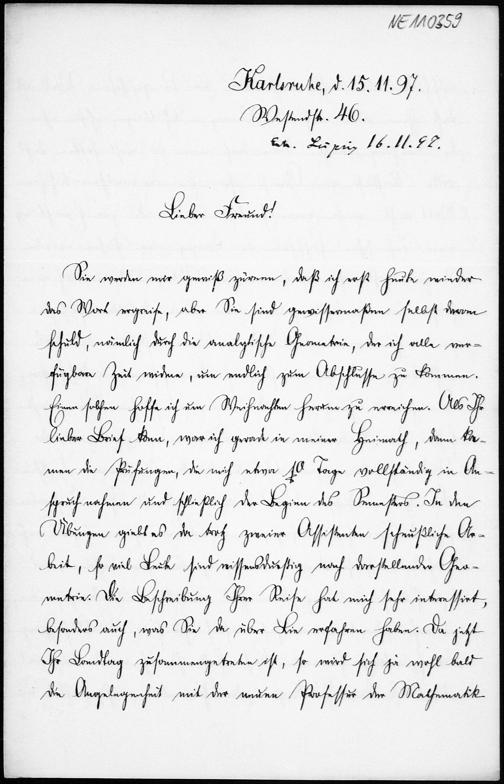 NE110359
Karlsruhe, d. 15.11.97.
Westendstr. 46.
Leipzig 16.11.97.
Lieber Freund!
Sie werden mir gewiß zürnen, daß ich erst heute wieder
das Wort ergreife, aber Sie sind gewissermaßen selbst daran
schuld, nämlich durch die analytische Geometrie, der ich alle ver-
fügbare Zeit widme, um endlich zum Abschlusse zu kommen.
Einen solchen hoffe ich um Weihnachten herum zu erreichen. Als Ihr
lieber Brief kam, war ich gerade in meiner Heimath, dann ka-
men die Prüfungen, die mich etwa 10 Tage vollständig in An-
spruch nahmen und schließlich der Beginn des Semesters. In den
Übungen giebt es da trotz zweier Assistenten scheußliche Ar-
beit, so viel Leute sind wissensdurstig nach darstellender Geo-
metrie. Die Beschreibung Ihrer Reise hat mich sehr interessirt,
besonders auch, was Sie da über Lie erfahren haben. Da jetzt
Ihr Landtag zusammengetreten ist, so wird sich ja wohl bald
die Angelegenheit mit der neuen Professur der Mathematik